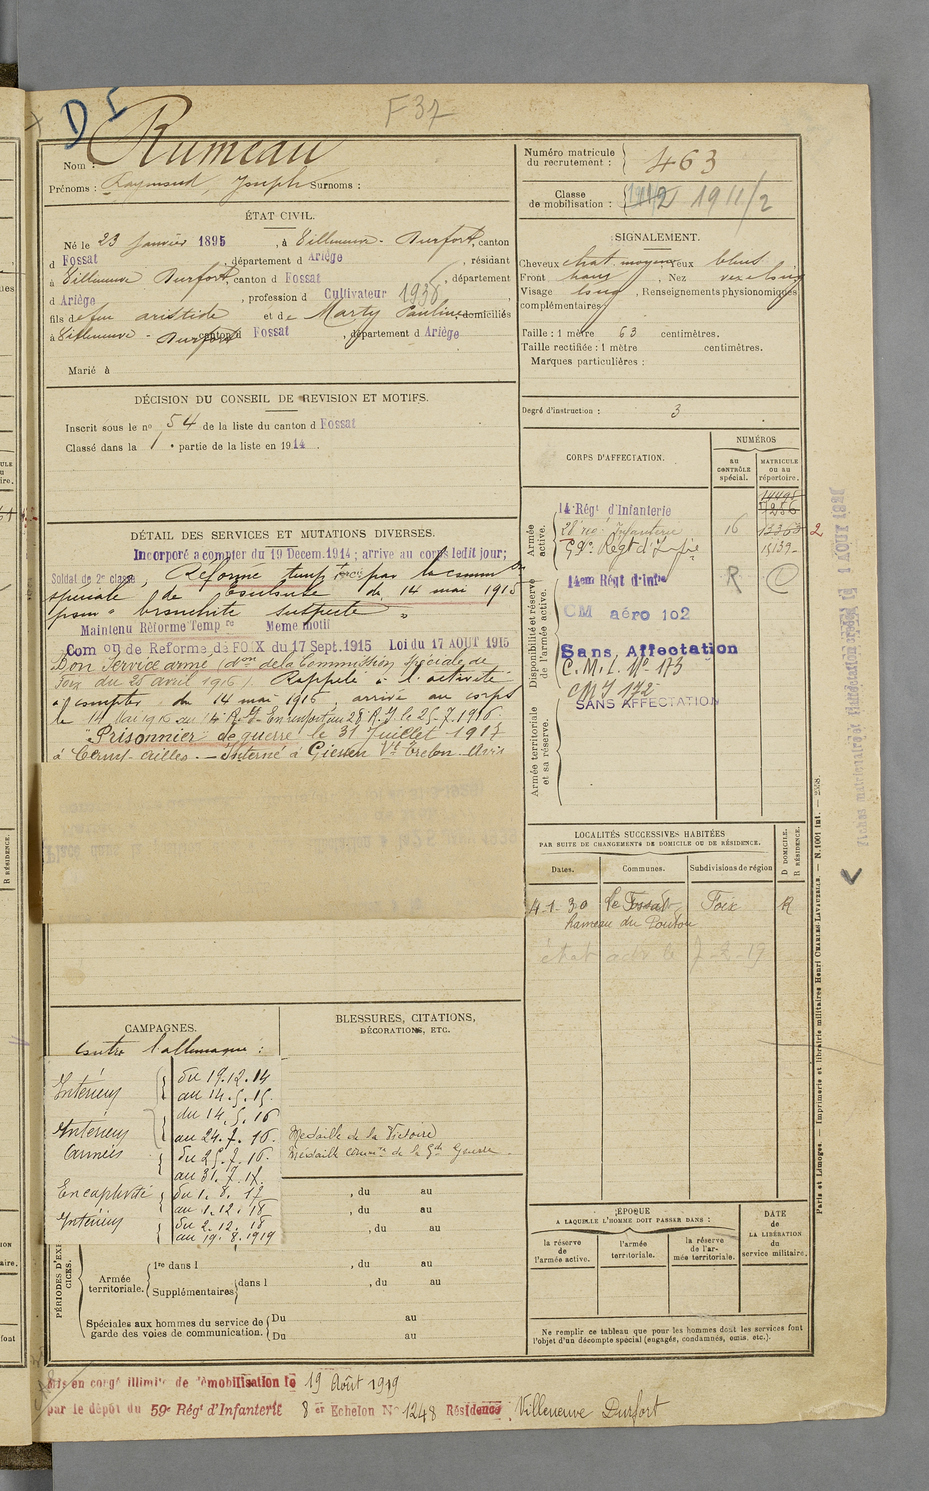 D I
F 37
Nom : Rumeau
Prénoms : Raymond, Joseph Surnoms :
ÉTAT CIVIL.
Né le 23 Janvier 1895, à Villeneuve-Durfort, canton
d Fossat, département d Ariège, résidant
à Villeneuve Durfort, canton d Fossat, département
d Ariège, profession d Cultivateur 1936
fils de feu Aristide et de Marty Pauline domiciliés
à Villeneuve-Durfort canton d Fossat, département d Ariège
Marié à
DÉCISION DU CONSEIL DE REVISION ET MOTIFS.
Inscrit sous le no 54 de la liste du canton d Fossat
Classé dans la 1 e partie de la liste en 1914.
DÉTAIL DES SERVICES ET MUTATIONS DIVERSES.
Incorporé a compter du 19 Décem. 1914 ; arrive au corps ledit jour;
Soldat de 2e classe, Réformé temp re par la comm on
spéciale de Toulouse du 14 mai 1915
pour "bronchite suspecte"
Maintenu Réforme Temp re Meme motif
Com on de Reforme de FOIX du 17 Sept. 1915 Loi du 17 AOUT 1915
Bon Service armé (d on de la Commission Spéciale de
Foix du 25 avril 1916). Rappelé à l'activité
à compter du 14 mai 1916, arrivé au corps
le 14 Mai 1916 au 14e R.I. En renfort au 28 R.I. le 25.7.1916.
"Prisonnier de guerre" le 31 Juillet 1917
à Cerny-Ailles. — Interné à Giessen Vt Trelon. Avis
CAMPAGNES.
Contre l'allemagne :
Intérieur du 19.12.14
au 14.5.15.
Intérieur du 14.5.16
au 24.7.16.
Armées du 25.7.16.
au 31.7.17.
En captivité du 1.8.17
au 1.12.18
Intérieur du 2.12.18
au 19.8.1919
BLESSURES, CITATIONS,
DÉCORATIONS, ETC.
Médaille de la Victoire
Médaille comm ve de la Gde Guerre
, du au
, du au
, du au
PÉRIODES D'EXERCICES.
Armée territoriale.
1re dans l , du au
Supplémentaires dans l , du au
Spéciales aux hommes du service de garde des voies de communication.
Du au
Du au
Mis en congé illimité de démobilisation le 19 Août 1919
par le dépôt du 59e Régt d'Infanterie 8 er Echelon No 1248 Résidence Villeneuve Durfort
Numéro matricule
du recrutement : 463
Classe
de mobilisation : 1911/2
SIGNALEMENT.
Cheveux chat. moyens Yeux bleus
Front haut, Nez
Visage long, Renseignements physionomiques
complémentaires
Taille : 1 mètre 63 centimètres.
Taille rectifiée : 1 mètre centimètres.
Marques particulières :
Degré d'instruction : 3
CORPS D'AFFECTATION.
NUMÉROS
au CONTRÔLE spécial.
MATRICULE ou au répertoire.
Armée active.
14 Régt d'Infanterie
7256
28e rég. Infanterie 16 2
15139
Disponibilité et réserve de l'armée active.
14em Régt d'Infie R
CM aéro 102
Sans, Affectation
C.M.L. No 173
CMI 172
SANS AFFECTATION
Armée territoriale et sa réserve.
LOCALITÉS SUCCESSIVES HABITÉES
PAR SUITE DE CHANGEMENTS DE DOMICILE OU DE RÉSIDENCE.
Dates. Communes. Subdivisions de région
D DOMICILE.
R RÉSIDENCE.
4.1.30 Le Fossat Foix R
hameau du
ÉPOQUE
A LAQUELLE L'HOMME DOIT PASSER DANS :
la réserve de l'armée active.
l'armée territoriale.
la réserve de l'armée territoriale.
DATE
de
LA LIBÉRATION
du
service militaire.
Ne remplir ce tableau que pour les hommes dont les services font
l'objet d'un décompte spécial (engagés, condamnés, omis, etc.).
Paris et Limoges. — Imprimerie et librairie militaires Henri CHARLES-LAVAUZELLE. — N. 1001 int.